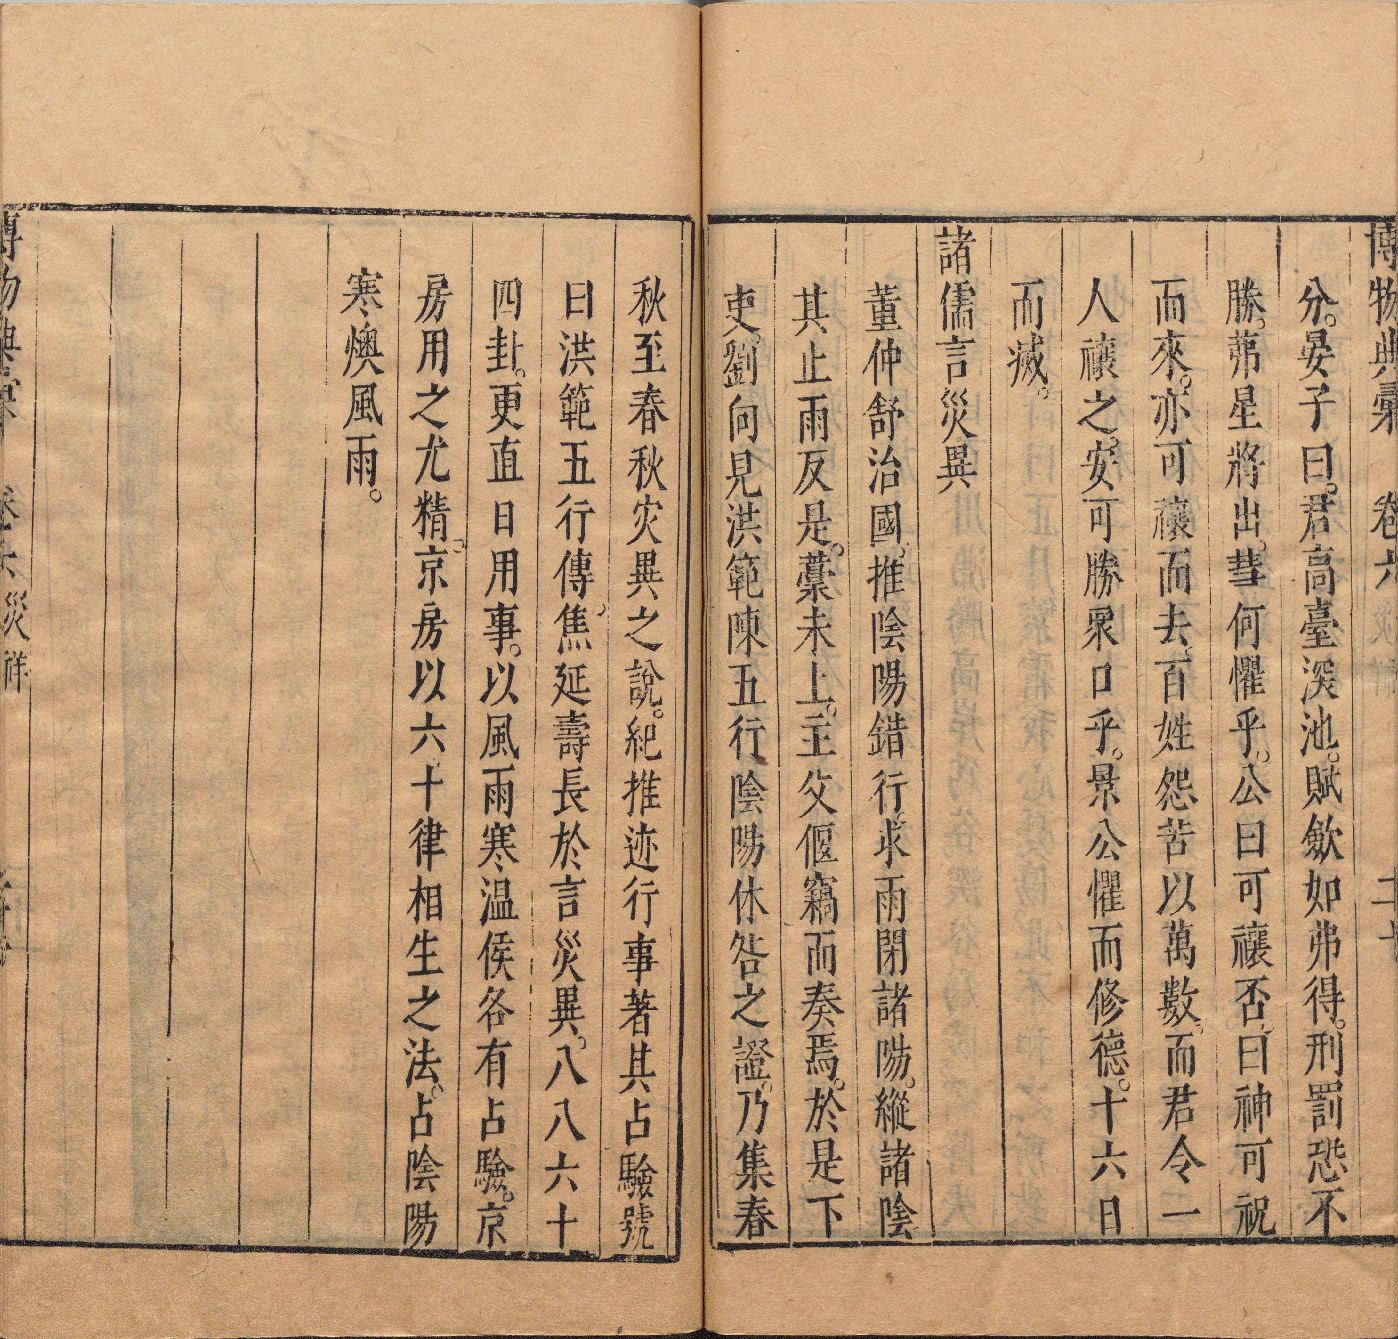 博物典彙 卷六 二十
分。晏子曰。君高臺深池。賦歛如弗得。刑罰恐不
勝。茀星將出。彗何懼乎。公曰可禳否。曰神可祝
而來。亦可禳而去。百姓怨苦以萬數。而君令一
人禳之。安可勝衆口乎。景公懼而修德。十六日
而滅。
諸儒言災異
董仲舒治國。推陰陽錯行。求雨閉諸陽。縱諸陰
其止雨反是。藁未上。主父偃竊而奏焉。於是下
吏。劉向見洪範陳五行陰陽休咎之證。乃集春
秋至春秋灾異之說。紀推迹行事著其占驗號
曰洪範五行傳。焦延壽長於言災異。八八六十
四卦。更直日用事。以風雨寒温候各有占驗。京
房用之尤精。京房以六十律相生之法。占陰陽
寒燠風雨。
博物典彙 卷六 災祥